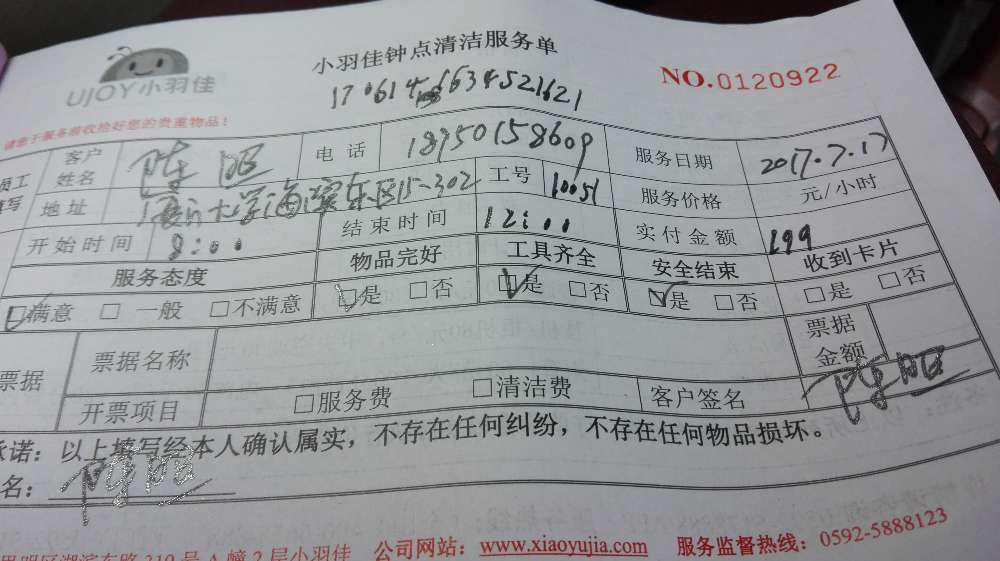 UJOY小羽佳
小羽佳钟点清洁服务单
NO.0120922
请您于服务前收拾好您的贵重物品!
客户姓名 陈昭 电话 18950158609 服务日期 2017.7.17
地址 厦门大学海滨东区15-302 工号 10051 服务价格 元/小时
开始时间 8:00 结束时间 12:00 实付金额 199
服务态度 物品完好 工具齐全 安全结束 收到卡片
☑满意 □ 一般 □不满意 ☑是 □否 ☑是 □否 ☑是 □否 □是 □否
票据 票据名称 票据金额
开票项目 □服务费 □清洁费 客户签名 陈昭
承诺：以上填写经本人确认属实，不存在任何纠纷，不存在任何物品损坏。
名：
湖滨东路319号A幢2层小羽佳 公司网站：www.xiaoyujia.com 服务监督热线：0592-5888123